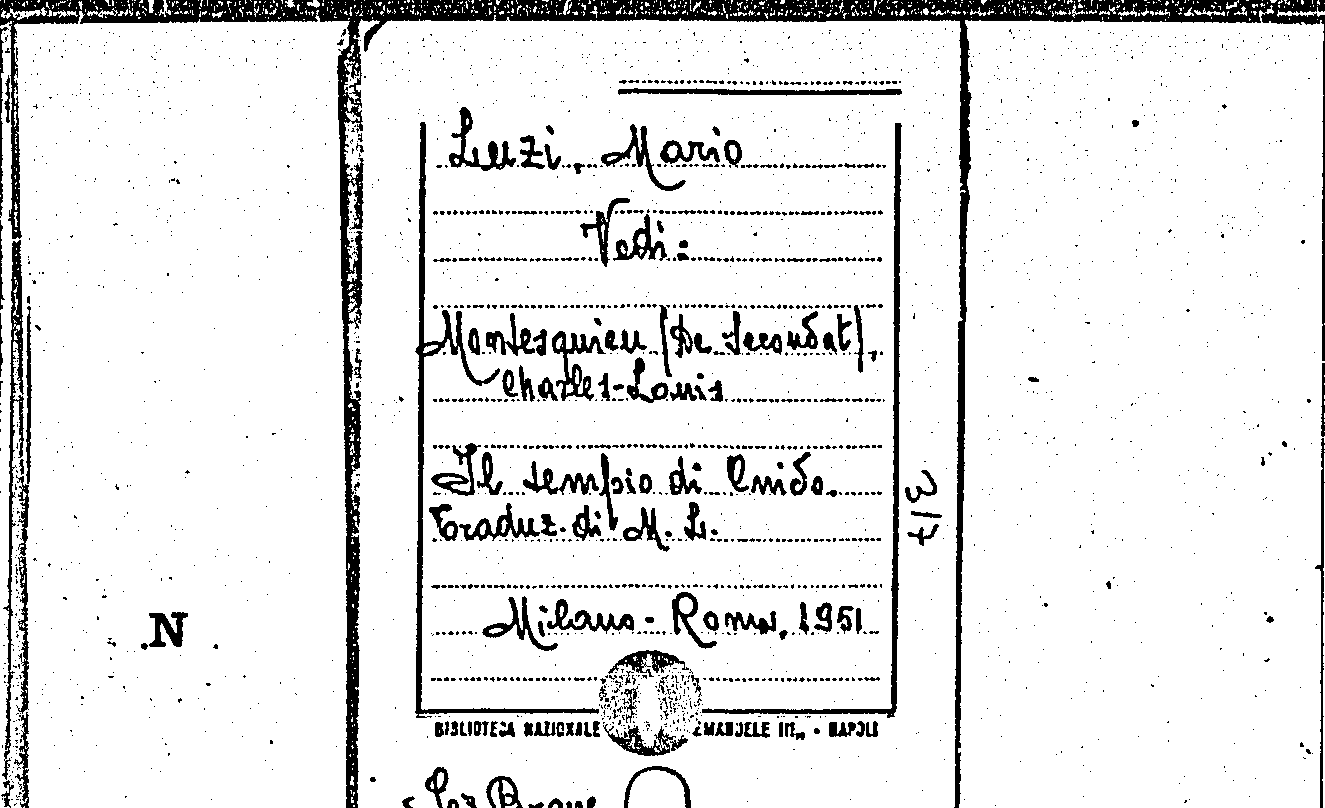 Luzi, Mario
Vedi:
Montesquieu (De Secondat),
Charles-Louis
Il tempio di Cnido.
Traduz. di M. L.
Milano - Roma, 1951
3/7
.N
BIBLIOTECA NAZIONALE EMANUELE III„ - NAPOLI